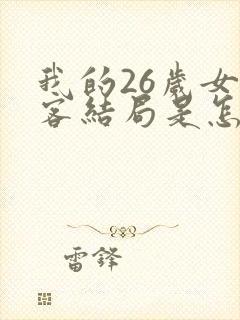 我的26歲女
客結局是怎
雷鋒